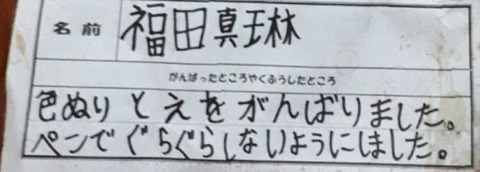 名前 福田真琳
がんばったところやくふうしたところ
色ぬりとえをがんばりました。
ペンでぐらぐらしないようにしました。